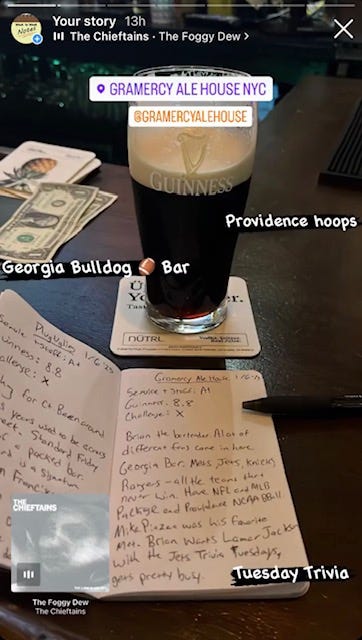 Your story 13h
The Chieftains · The Foggy Dew >
GRAMERCY ALE HOUSE NYC
@GRAMERCYALEHOUSE
GUINNESS
Providence hoops
Georgia Bulldog 🏈 Bar
NÜTRL
PlugUglies 1/6-25
ervice + staff: A+
uinness: 8.8
hallenge: X
years used to be across
Standard Friday
packed bar.
and is a signature
Gramercy Ale House 1/6-25
Service + staff: A+
Guinness: 8.8
Challenge: X
Brian the bartender A lot of
different fans come in here.
Georgia Bar. Mets, Jets, Knicks
Rangers - all the teams that
never win. Have NFL and MLB
Package and Providence NCAA BBall.
Mike Piazza was his favorite
Met. Brian wants Lamar Jackson
with the Jets Trivia Tuesdays,
gets pretty busy.
Tuesday Trivia
THE
CHIEFTAINS
The Foggy Dew
The Chieftains